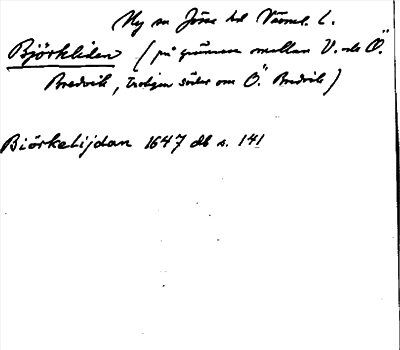 Hy sn Jösse hd Värml. l.
Björkliden (på gränsen mellan V. och Ö.
Bredvik, troligen söder om Ö. Bredvik)
Biörkelijdan 1647 db s. 141